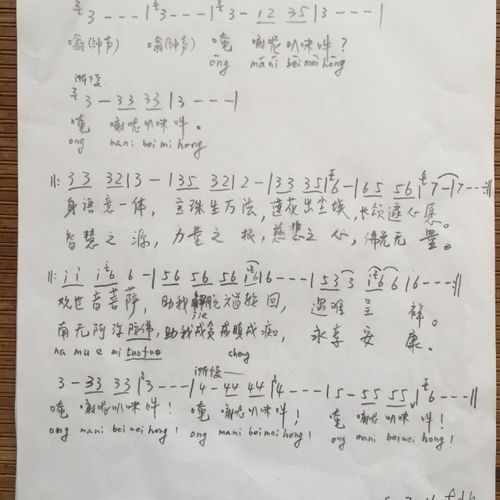 3 - - - | 3 - - - | 3 - 12 35 | 3 - - - |
嗡(钟声) 嗡(钟声) 唵 嘛呢叭咪吽?
ōng māní bēi mēi hōng
渐慢
3 - 33 33 | 3 - - - |
唵 嘛呢叭咪吽。
ong mani bei mi hong
||: 33 32 | 3 - | 35 32 | 2 - | 33 35 | 6 - | 65 56 | 7 - | 7 - - :||
身语意一体, 宝珠生万法, 莲花出尘埃, 长颂遂心愿。
智慧之源, 力量之根, 慈悲之心, 佛光无量。
||: i i i6 6 - | 56 56 56 i6 | 6 - - - | 5 3 3 i6 6 | 6 - - - :||
观世音菩萨, 助我解脱道轮回, 遇难呈祥。
jie
南无阿弥陀佛, 助我戒贪戒嗔戒痴, 永享安康。
na mu e mi tuo fuo cheng
渐慢
3 - 33 33 | 3 - - - | 4 - 44 44 | 4 - - - | 5 - 55 55 | 6 - - - ||
唵 嘛呢叭咪吽! 唵 嘛呢叭咪吽! 唵 嘛呢叭咪吽!
ong mani beimei hong! ong mani beimei hong! ong mani beimei hong!